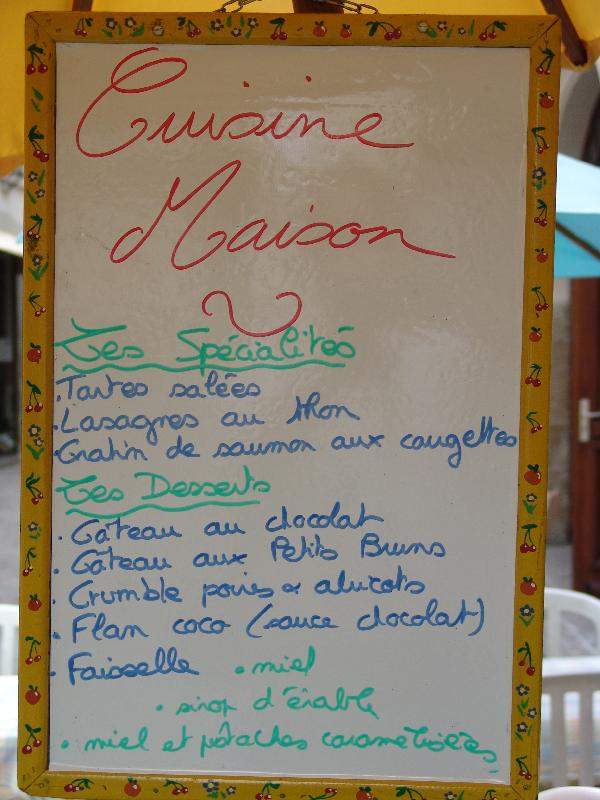 Cuisine
Maison
Les Spécialités
. Tartes salées
. Lasagnes au thon
. Gratin de saumon aux courgettes
Les Desserts
. Gâteau au chocolat
. Gâteau aux Petits Bruns
. Crumble poires & abricots
. Flan coco (sauce chocolat)
. Faisselle . miel
. sirop d'érable
. miel et pistaches caramélisées